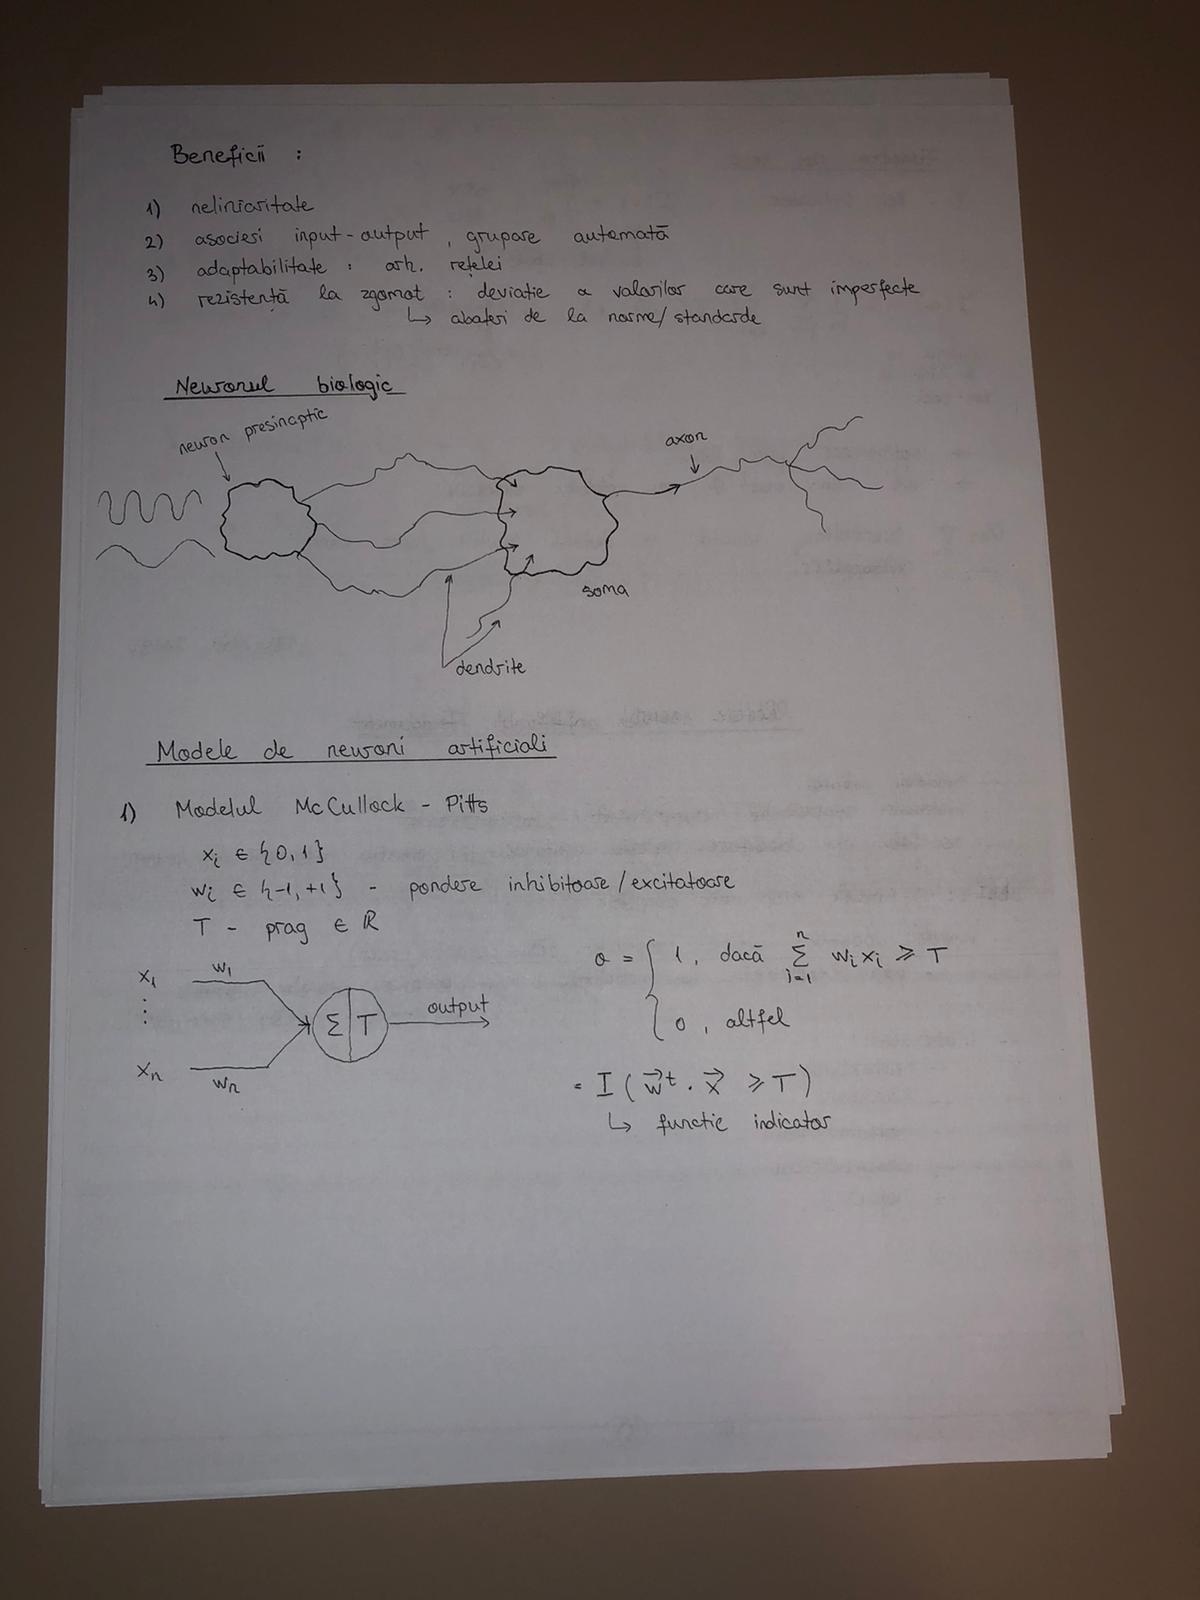 Beneficii :
1) neliniaritate
2) asocieri input-output, grupare automată
3) adaptabilitate : arh. rețelei
4) rezistență la zgomot : deviație a valorilor care sunt imperfecte
↳ abateri de la norme/standarde
Neuronul biologic
neuron presinaptic
axon
soma
dendrite
Modele de neuroni artificiali
1) Modelul McCullock - Pitts
xi ∈ {0,1}
wi ∈ {-1,+1} - pondere inhibitoare/excitatoare
T - prag ∈ ℝ
x1 w1
⋮
Σ | T output
xn wn
o = { 1, dacă Σ_{i=1}^{n} wi xi ≥ T
0, altfel
= I ( w⃗ᵗ · x⃗ ≥ T )
↳ functie indicator